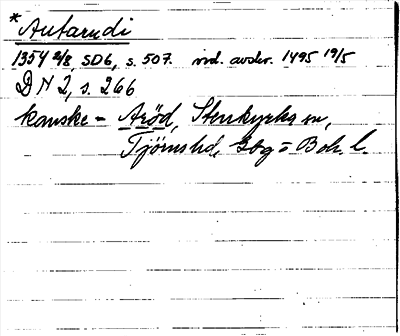 * Autarudi
1354 2/8, SD6, s. 507. vid. avskr. 1495 19/5
D N 2, s. 266
kanske = Aröd, Stenkyrka sn,
Tjörns hd, Gbg o Boh. l.